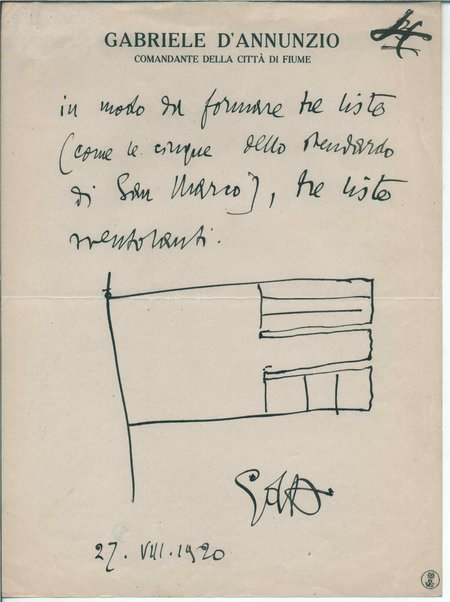 GABRIELE D'ANNUNZIO
COMANDANTE DELLA CITTÀ DI FIUME
in modo da formare tre liste
(come le cinque dello stendardo
di San Marco), tre liste
sventolanti.
27. VIII. 1920